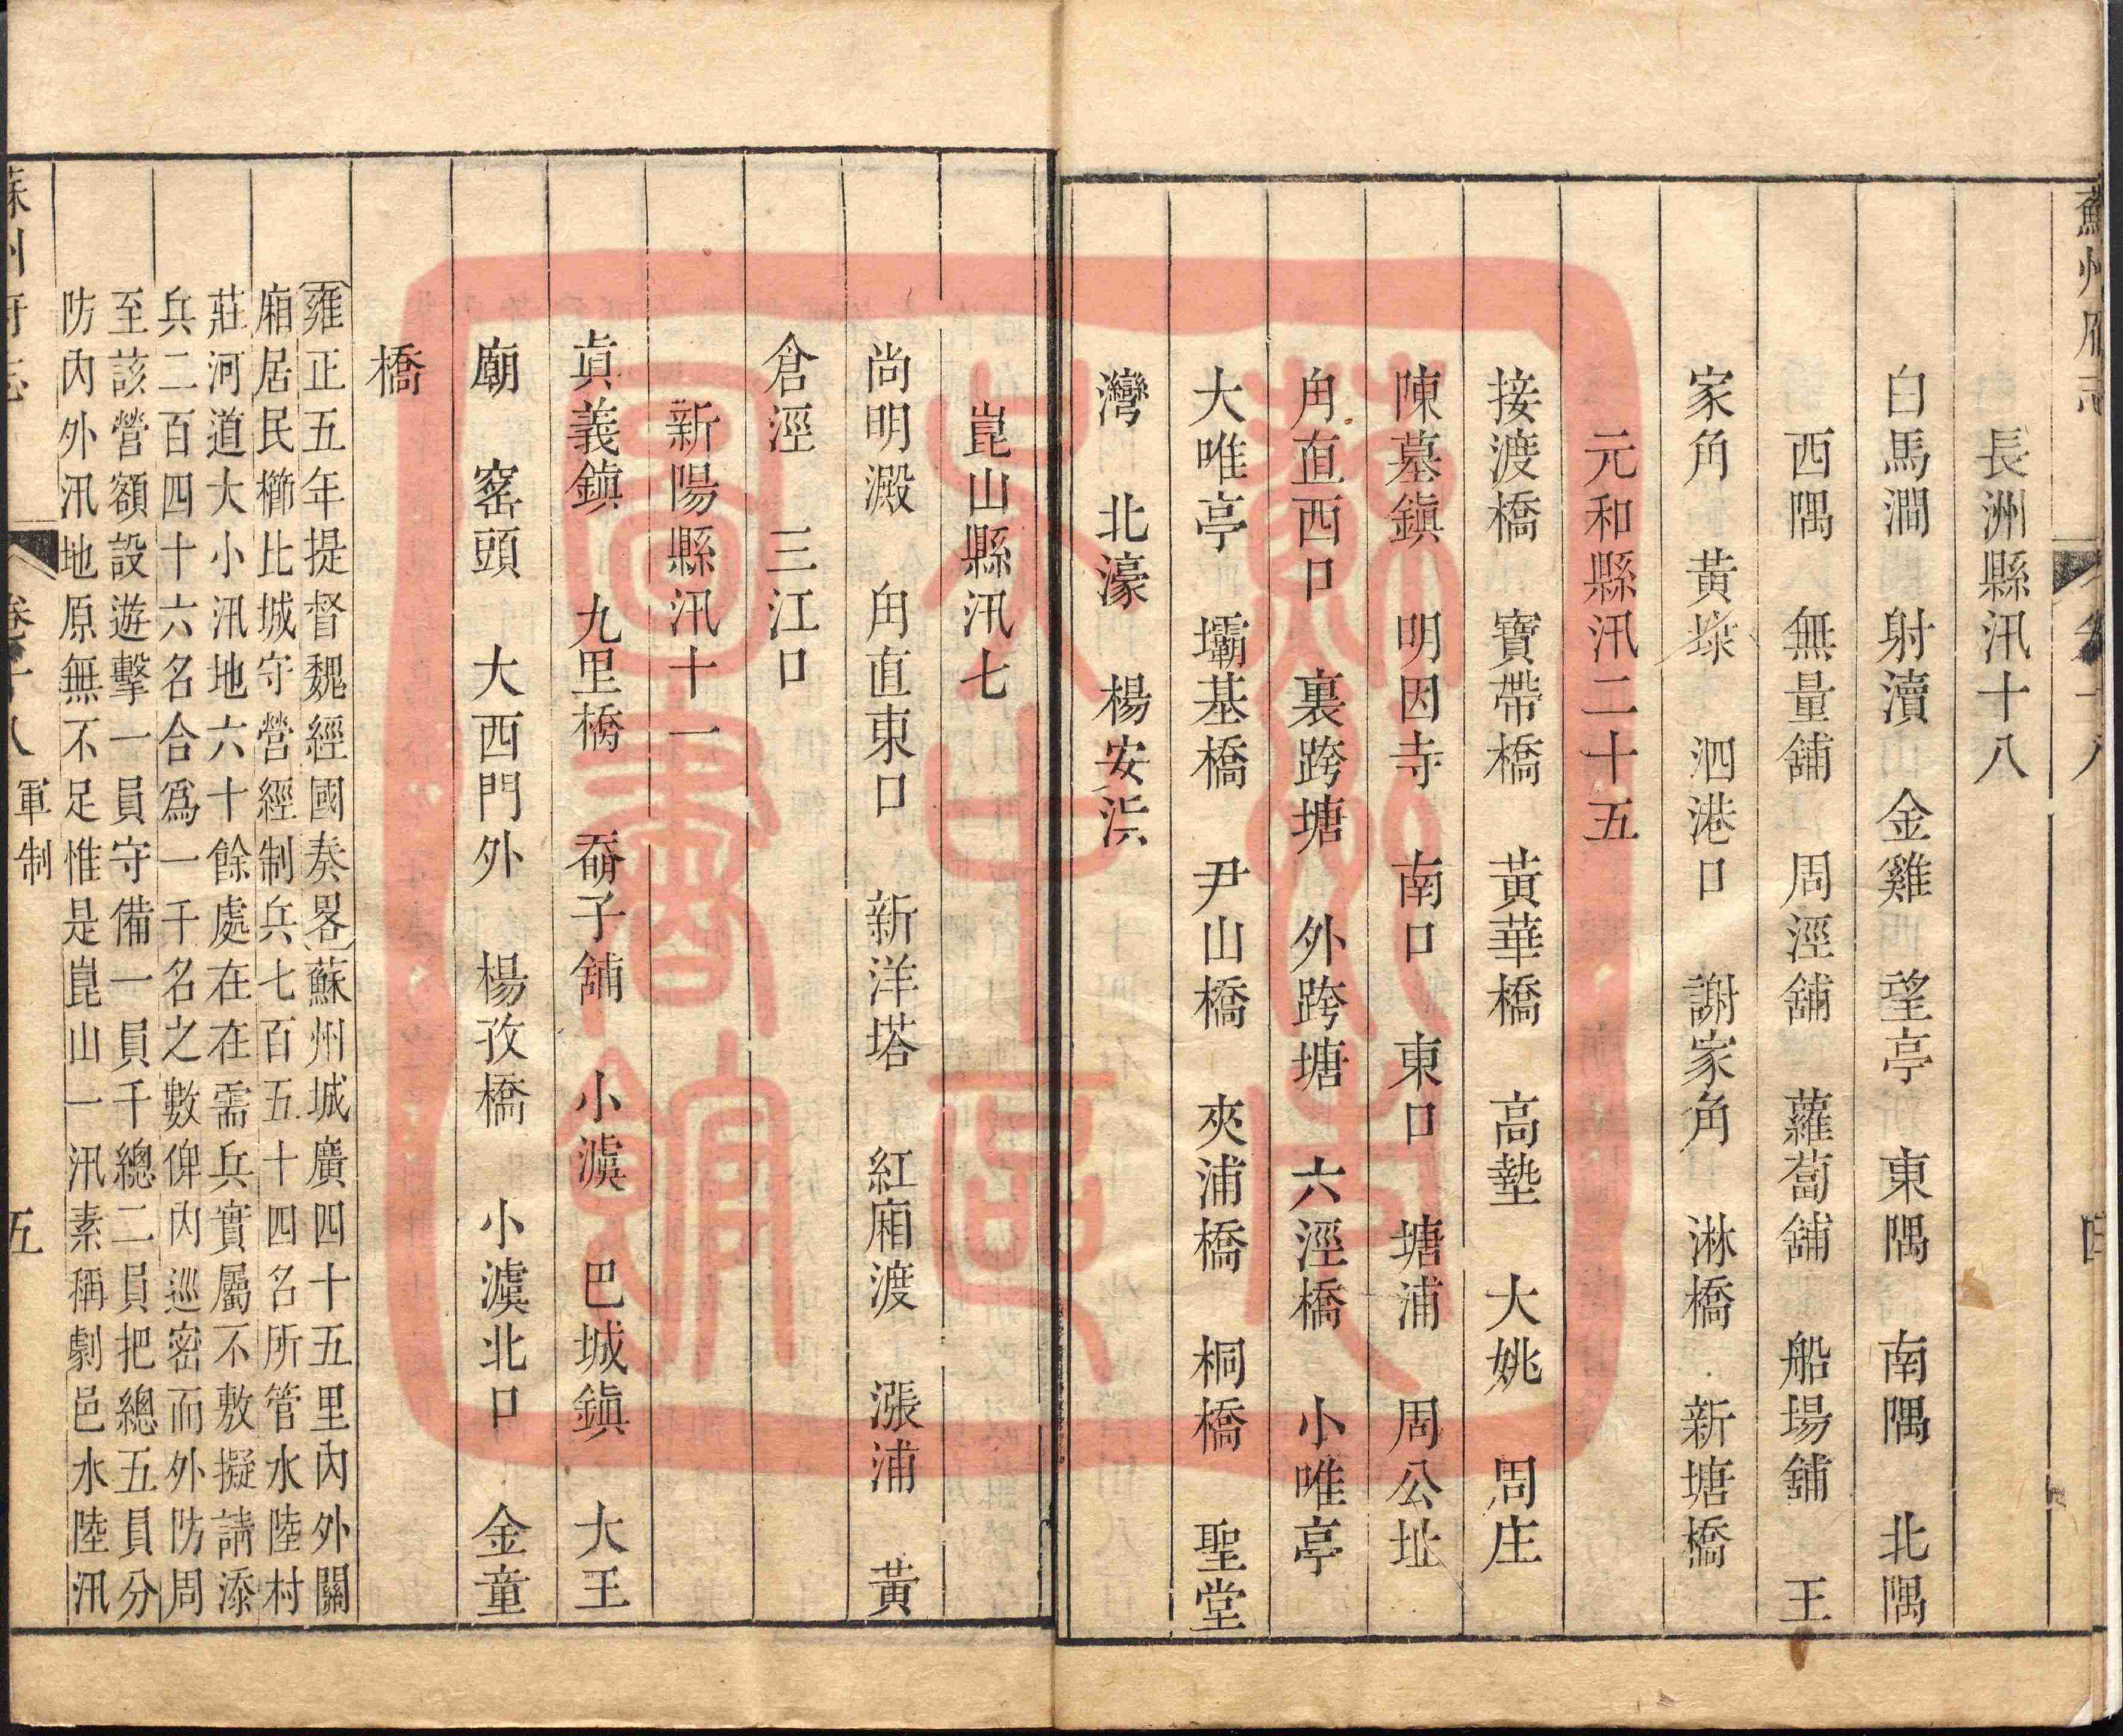 蘇州府志
長洲縣汛十八
白馬澗 射瀆 金雞 望亭 東隅 南隅 北隅
西隅 無量舖 周涇舖 蘿蔔舖 船場鋪 王
家角 黃埭 泗港口 謝家角 淋橋 新塘橋
元和縣汛二十五
接渡橋 寶帶橋 黃華橋 高墊 大姚 周庄
陳墓鎮 明因寺 南口 東口 塘浦 周公址
甪直西口 裏跨塘 外跨塘 六涇橋 小唯亭
大唯亭 壩基橋 尹山橋 夾浦橋 桐橋 聖堂
灣 北濠 楊安浜
崑山縣汛七
尚明澱 甪直東口 新洋塔 紅廂渡 漲浦 黃
倉涇 三江口
新陽縣汛十一
眞義鎭 九里橋 孬子舖 小澞 巴城鎭 大王
廟 窰頭 大西門外 楊孜橋 小澞北口 金童
橋
雍正五年提督魏經國奏畧蘇州城廣四十五里內外關
廂居民櫛比城守營經制兵七百五十四名所管水陸村
莊河道大小汛地六十餘處在在需兵實屬不敷擬請添
兵二百四十六名合爲一千名之數俾內巡密而外防周
至該營額設遊擊一員守備一員千總二員把總五員分
防內外汛地原無不足惟是崑山一汛素稱劇邑水陸汛
蘇州府志 卷十八 軍制 五